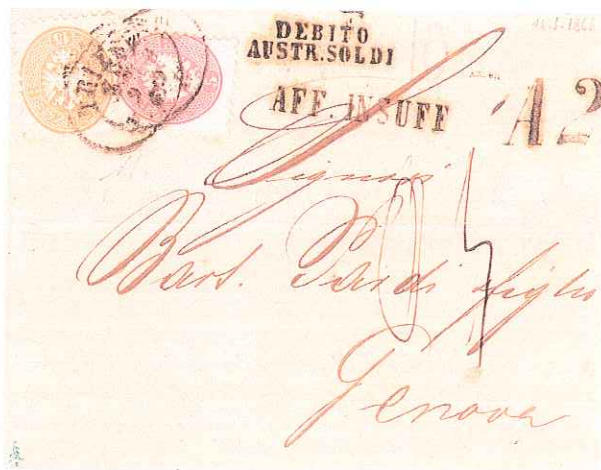 DEBITO
AUSTR. SOLDI
AFF. INSUFF
A2
Signori
Bart. Pardi figlio
Genova